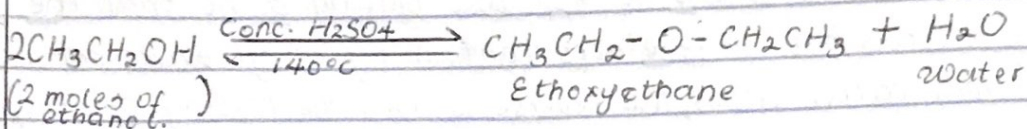 2CH3CH2OH Conc. H2SO4 140°C CH3CH2-O-CH2CH3 + H2O
(2 moles of ethanol.) Ethoxyethane Water